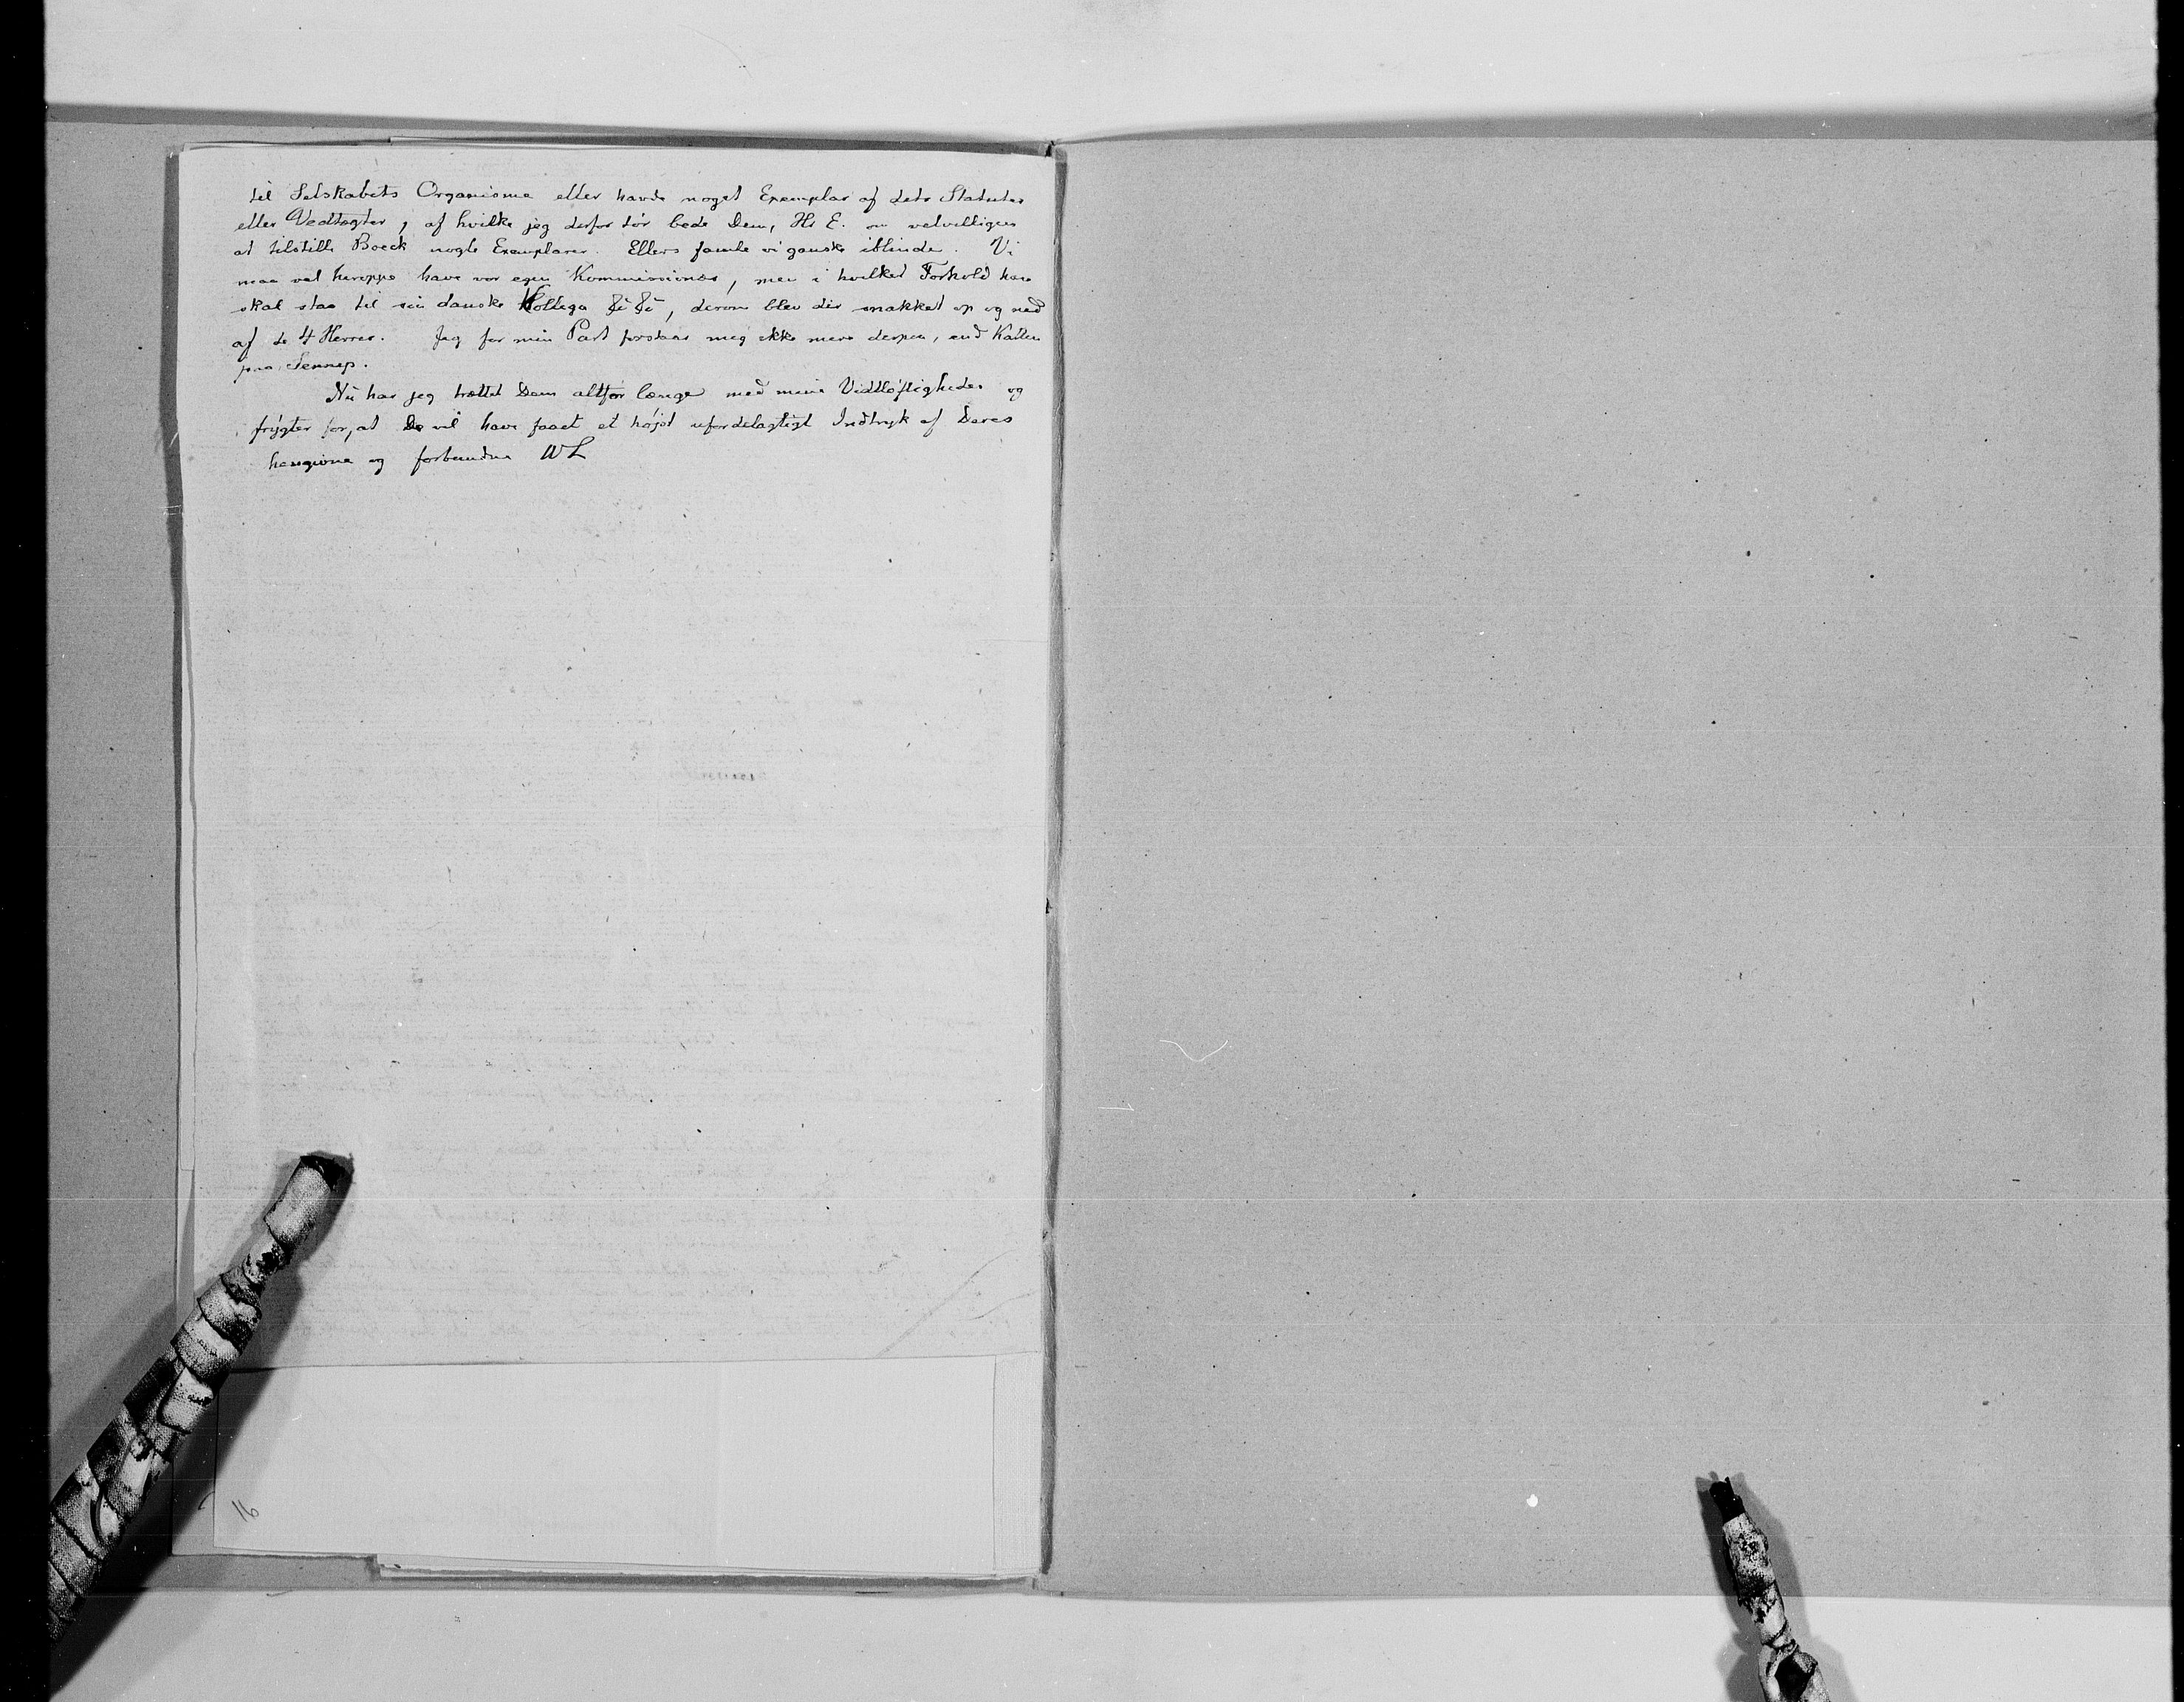 til Selskabets Organisme eller havde noget Exemplar af dets Statuter
eller Vedtægter, af hvilke jeg derfor tør bede Dem, Hr E. om velvilligen
at tilstille Boeck nogle Exemplarer. Ellers famle vi ganske iblinde. Vi
maa vel heroppe have vor egen Kommissionær, men i hvilket Forhold han
skal staa til sin danske Kollega, derom blev der snakket op og ned
af de 4 Herrer. Jeg for min Part forstaar mig ikke mere derpaa, end Katten
paa Sennep.
Nu har jeg trættet Dem altfor længe med mine Vidtløftigheder og
frygter for, at De vil have faaet et højst ufordelagtigt Indtryk af Deres
hengivne og forbundne WL
16